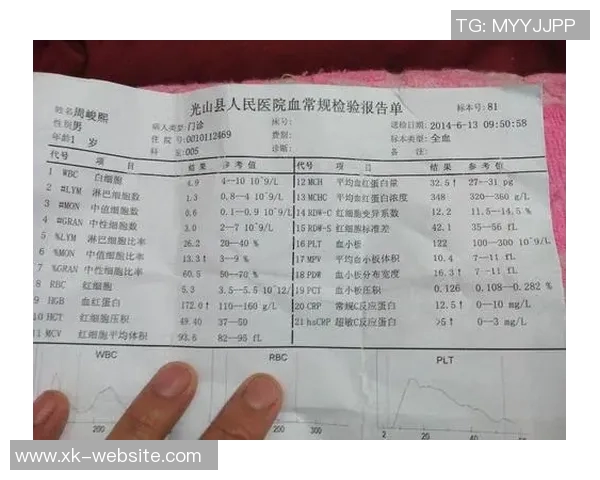 TG: MYYJJPP
光山县人民医院血常规检验报告单
标本号: 81
姓名 周峻熙
性别 男
年龄 1 岁
病人类型: 门诊
住 院 号: 0010112469
科 室: 005
床号:
费别:
诊断:
送检日期: 2014-6-13 09:50:58
标本类型: 全血
备 注:
代号 项 目 结 果 参 考 值
1 WBC 白细胞 4.9 4—10 10^9/L
2 #LYM 淋巴细胞数 1.3 0.8—4 10^9/L
3 #MON 中值细胞数 0.6 0.1—0.9 10^9/L
4 #GRAN 中性细胞数 3.0 2—7 10^9/L
5 %LYM 淋巴细胞比率 26.2 20—40 %
6 %MON 中值细胞比率 13.3↑ 3—9 %
7 %GRAN 中性细胞比率 60.5 50—70 %
8 RBC 红细胞 5.3 3.5—5.5 10^12/
9 HGB 血红蛋白 172.0↑ 110—160 g/L
10 HCT 红细胞压积 49.40 37—50
11 MCV 红细胞平均体积 93.6 82—95 fL
代号 项 目 结 果 参 考 值
12 MCH 平均血红蛋白量 32.5↑ 27—31 pg
13 MCHC 平均血红蛋白浓度 348 320—360 g/L
14 RDW-C 红细胞变异系数 12.2 11.5—14.5 %
15 RDW-S 红细胞标准差 42.1 35—56 fL
16 PLT 血小板 122 100—300 10^9/L
17 MPV 平均血小板体积 10.4 7—11 fL
18 PDW 血小板分布宽度 16.3↑ 7—11 fL
19 PCT 血小板压积 0.126 0.108—0.282 %
20 CRP 常规C反应蛋白 12.5↑ 0—10 mg/L
21 hsCRP 超敏C反应蛋白 >5↑ 0—3 mg/L
WBC
RBC
PLT
200
200
300
20
www.xk-website.com